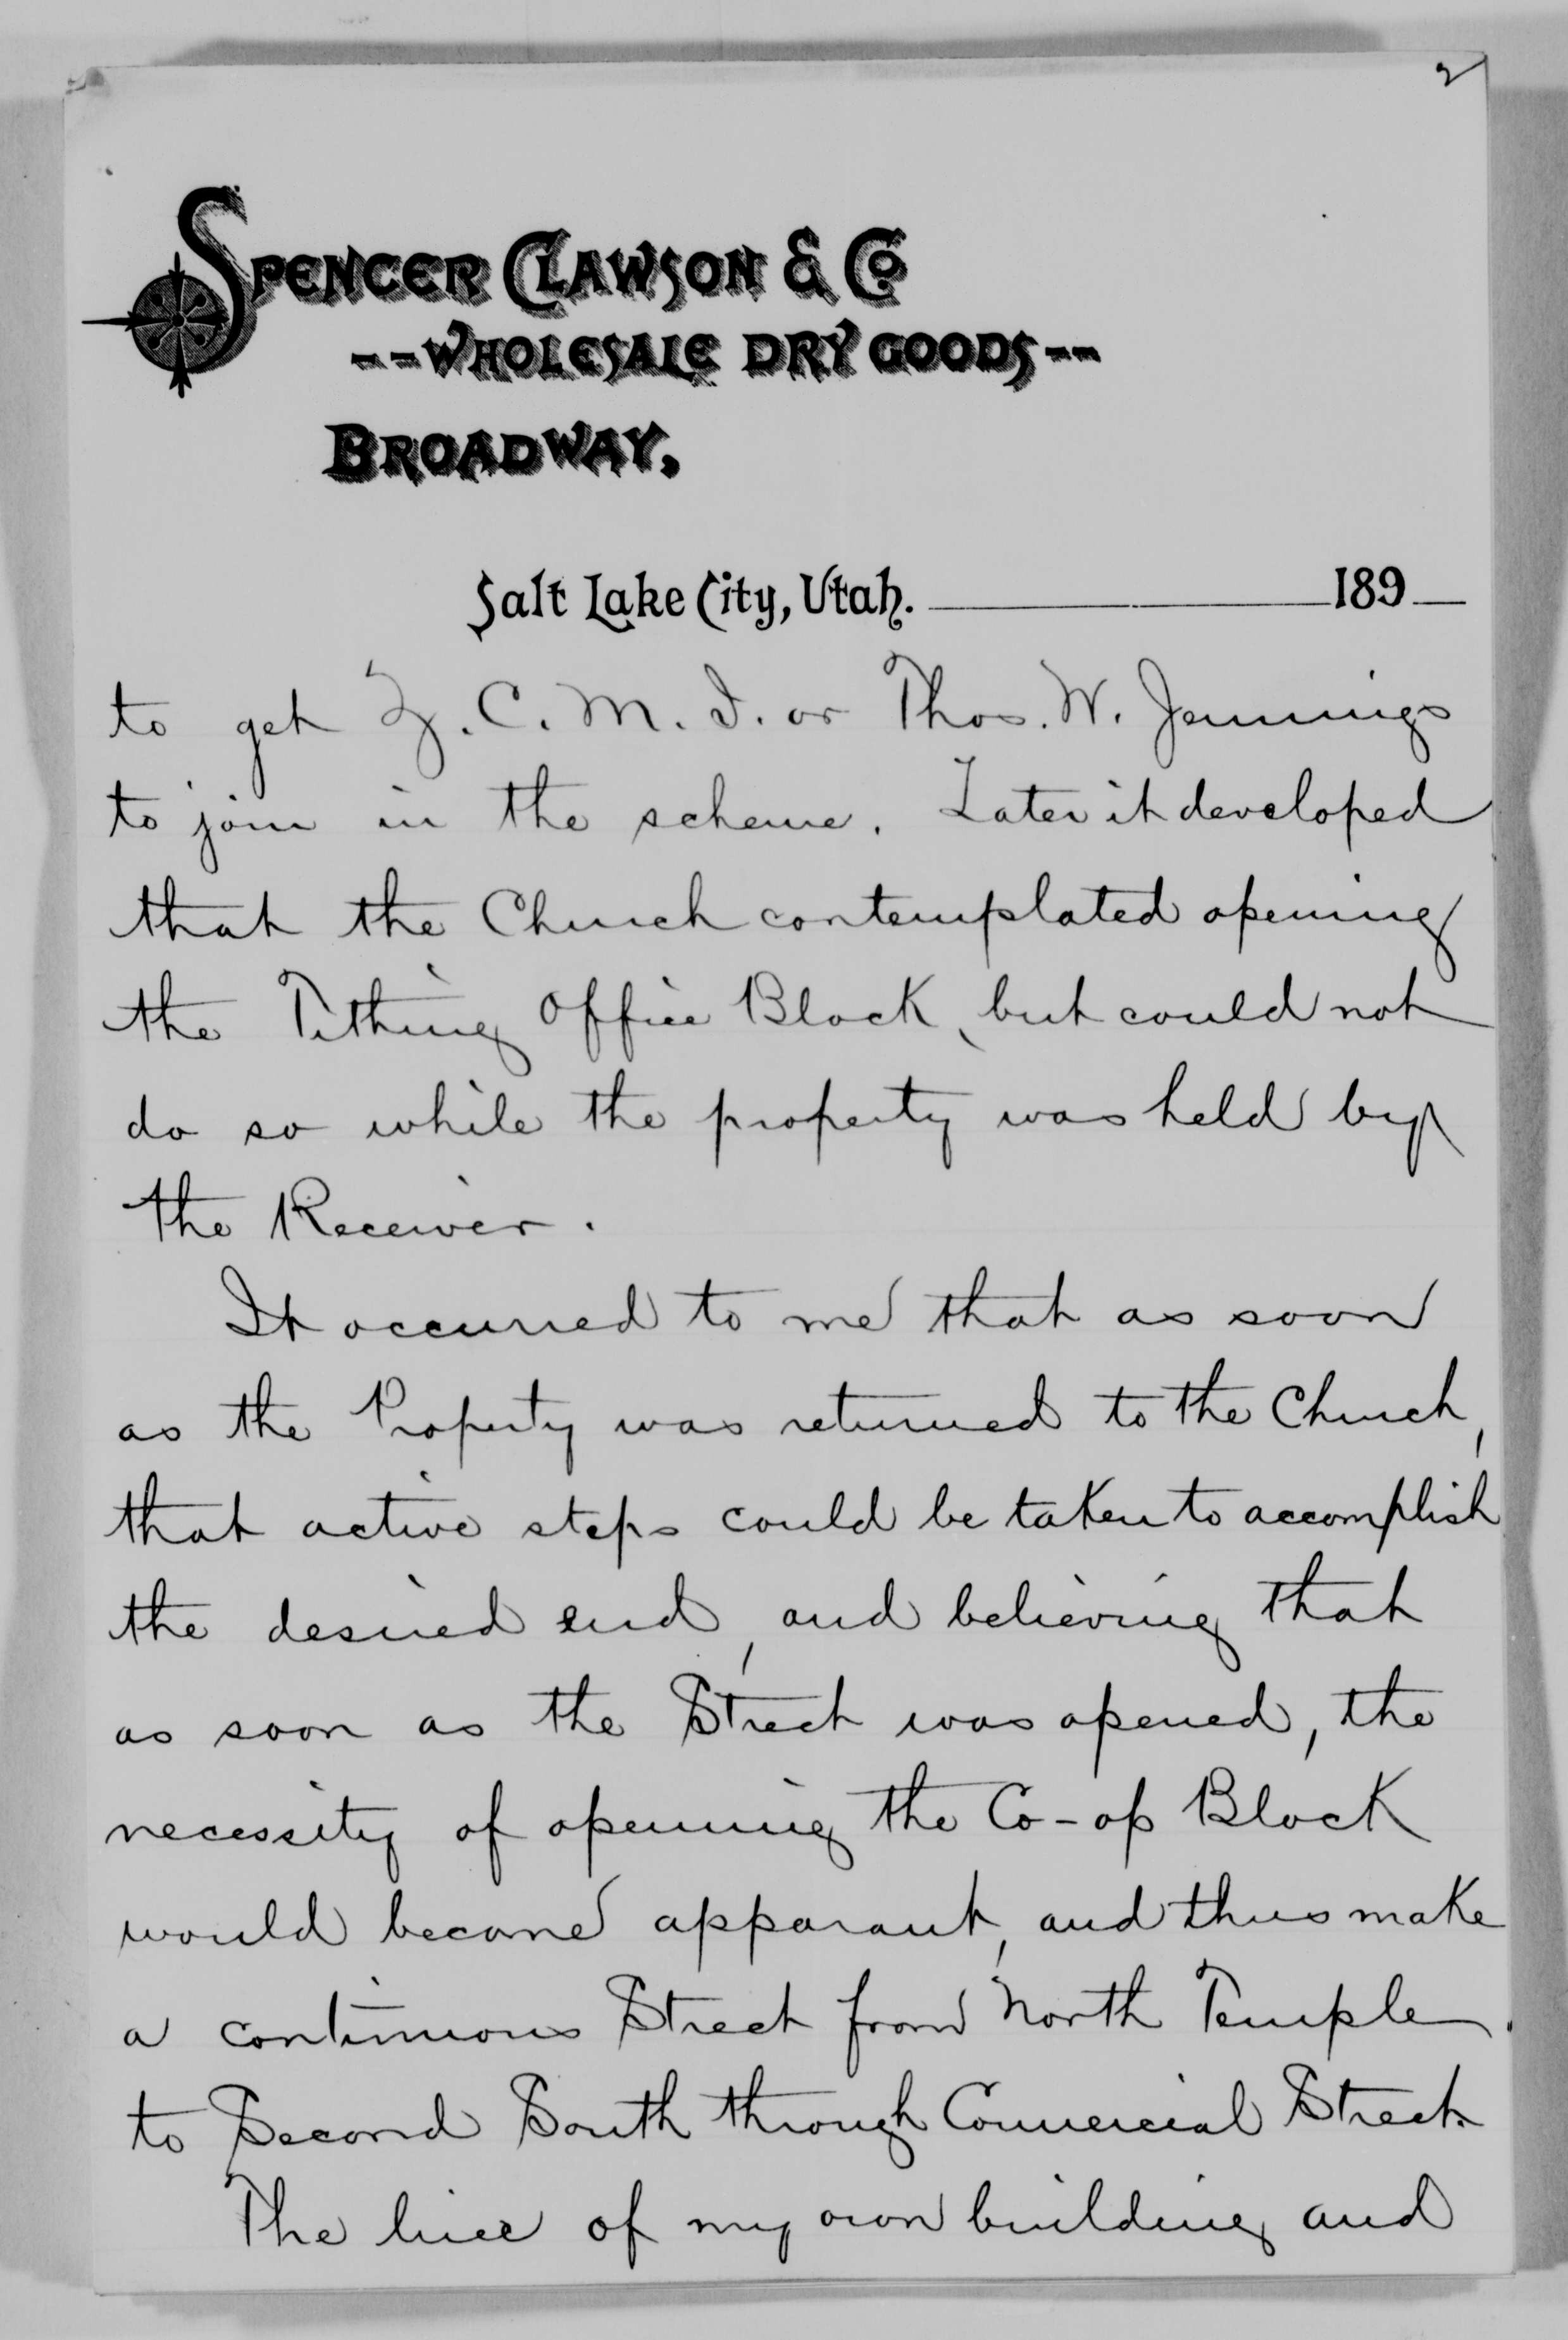 2
SPENCER CLAWSON & CO
--WHOLESALE DRY GOODS--
BROADWAY,
Salt Lake City, Utah. 189
to get Z. C. M. I. or Thos. W. Jennings
to join in the scheme. Later it developed
that the Church contemplated opening
the Tithing Office Block, but could not
do so while the property was held by
the Receiver.
It occurred to me that as soon
as the Property was returned to the Church,
that active steps could be taken to accomplish
the desired end, and believing that
as soon as the Street was opened, the
necessity of opening the Co-op Block
would become apparant, and thus make
a continuous Street from North Temple
to Second South through Commercial Street.
The line of my own building and